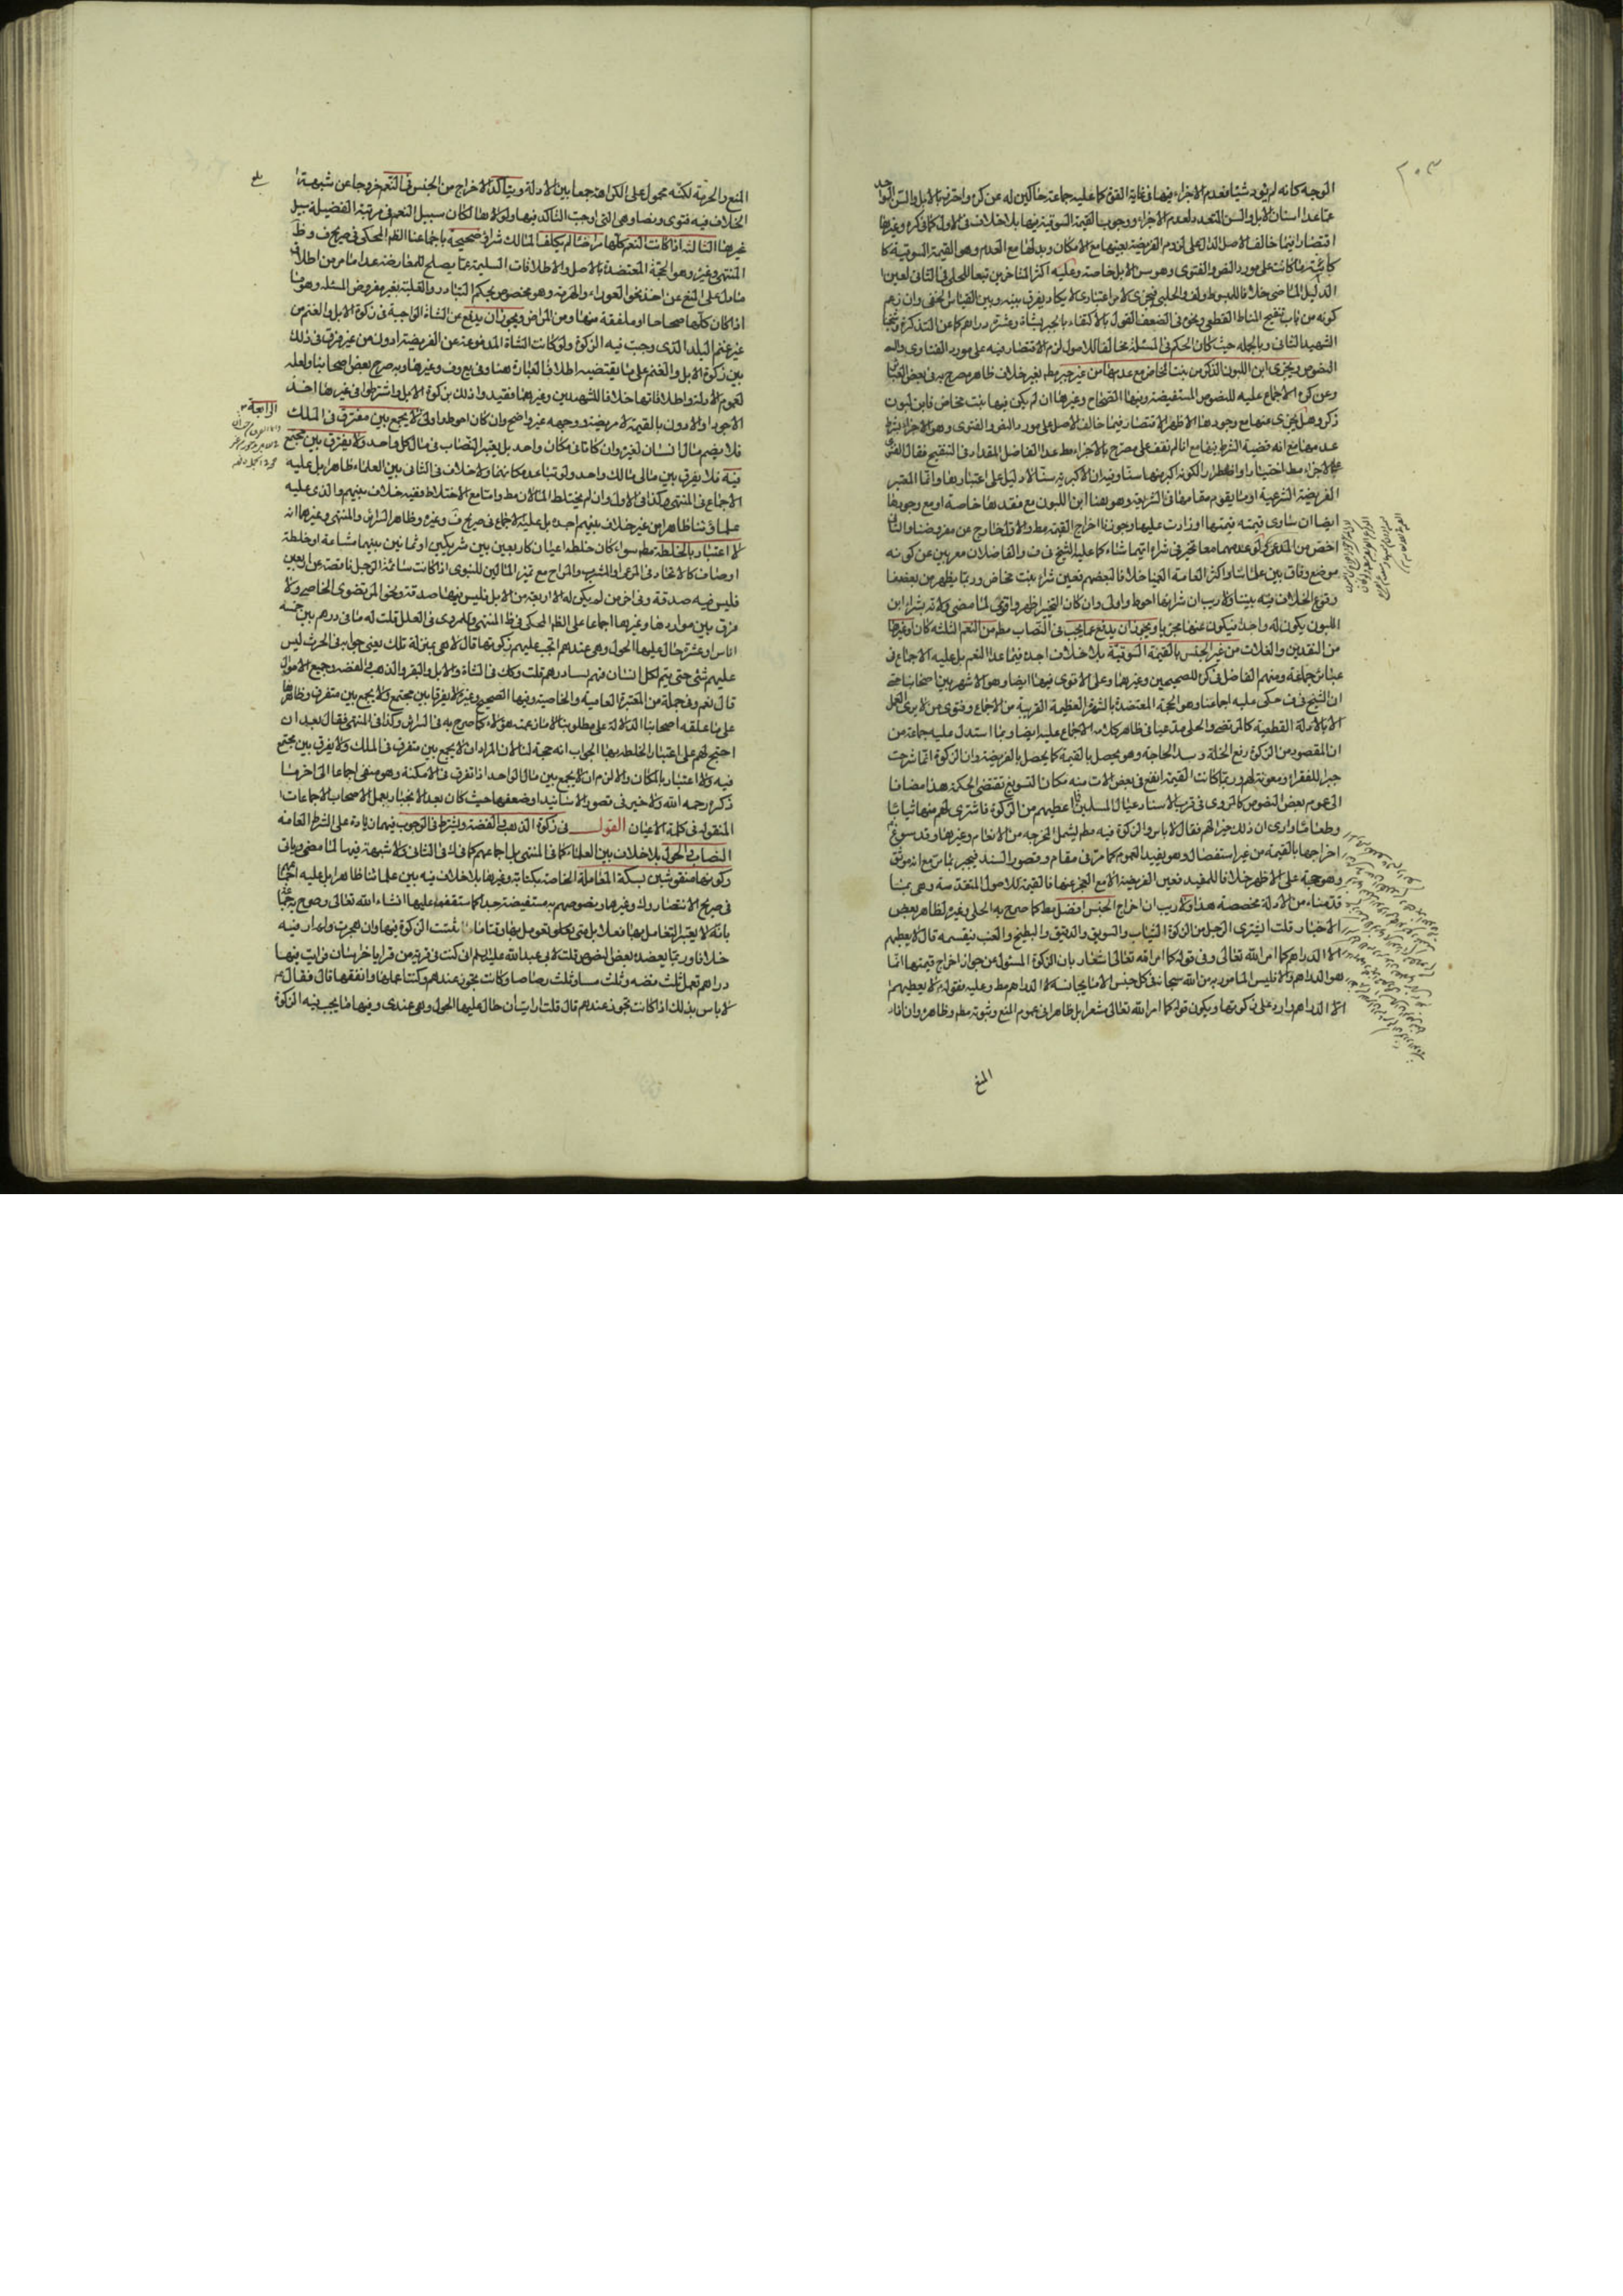 الوجه كانه لم يؤد شيئا فعدم الاجزاء فيهما فى غاية القوة كما عليه جماعة حاكين له عن كره واحترز بالابل والسن الواحد
عما عدا اسنان الابل والسن المتعدد لعدم الاجزاء ووجوب القيمة السوقية فيهما بلا خلاف فى الاول كما فى كره وغيرها
اقتصارا فيما خالف الاصل الدال على لزوم الفريضة بعينها مع الامكان وبدلها مع العدم وهو القيمة السوقية كا
كائنة ما كانت على مورد النص والفتوى وهو سن الابل خاصة وعليه اكثر المتاخرين تبعا للحلى فى الثانى لعين
الدليل الماضى خلافا للمبسوط والحلبى فيجزى لامر اعتبارى لا يكاد يفرق بينه وبين القياس الخفى وان زعم
كونه من باب تنقيح المناط القطعى ونحوه فى الضعف القول بالاكتفاء بالجبر بشاة وعشرة دراهم كما عن التذكرة وشيخنا
الشهيد الثانى وبالجملة حيث كان الحكم فى المسئلة مخالفا للاصول لزم الاقتصار فيه على مورد الفتاوى و
النصوص ويجزى ابن اللبون الذكر عن بنت المخاض مع عدمها من غير جبر مطم بغير خلاف ظاهر مصرح به فى بعض العبائر
وعن كره الاجماع عليه للنصوص المستفيضة وفيها الصحاح وغيرها ان لم يكن فيها بنت مخاض فابن لبون
ذكر وهل يجزى عنها مع وجودها الاظهر لا اقتصارا فيما خالف الاصل على مورد النص والفتوى وهو الاجزاء بشرط
عدمها مع انه قضية الشرط فيها مع انا لم نقف على مصرح بالاجزاء مط عدا الفاضل المقداد فى التنقيح فقال الفتوى
على الاجزاء مط اختيارا واضطرارا لكونه اكبر منها سنا وفيه ان الاكبرية سنا لا دليل على اعتبارها وانما المعتبر
الفريضة الشرعية او ما يقوم مقامها فى الشريعة وهو هنا ابن اللبون مع فقدها خاصة او مع وجودها
ايضا ان ساوى قيمته قيمتها او زادت عليها وجوزنا اخراج القيمة مط والاول خارج عن مفروضنا والثانى
اخص من المدعى ولو عدمهما معا تخير فى شراء ايهما شاء كما عليه الشيخ فى ف والفاضلان معربين عن كونه
موضع وفاق بين علمائنا واكثر العامة العمياء خلافا لبعضهم فعين شراء بنت مخاض وربما يظهر من بعضهم
وقوع الخلاف فيه بيننا ولا ريب ان شرائها احوط واولى وان كان التخيير اظهر واقوى لما مضى ولانه بشراء ابن
اللبون يكون له واحد فيكون عنها مجزيا ويجوز ان يدفع عما يجب فى النصاب مطم من النعم الثلثة كان او غيرها
من النقدين والغلات من غير الجنس بالقيمة السوقية بلا خلاف اجده فيما عدا النعم بل عليه الاجماع فى
عبائر جماعة ومنهم الفاضل فى كره للصحيحين وغيرهما وعلى الاقوى فيها ايضا وهو الاشهر بين اصحابنا حتى
ان الشيخ فى ف حكى عليه اجماعنا وهو الحجة المعتضدة بالشهرة العظيمة القريبة من الاجماع وفتوى من لا يرى العمل
الا بالادلة القطعية كالمرتضى والحلى مدعيا فى ظاهر كلامه الاجماع عليه ايضا وبما استدل عليه جماعة من
ان المقصود من الزكوة رفع الخلة وسد الحاجة وهو يحصل بالقيمة كما يحصل بالفريضة وان الزكوة انما شرعت
جبرا للفقراء ومعونة لهم وربما كانت القيمة انفع فى بعض الاوقات منه فكان التسويغ تقتضى الحكمة هذا مضافا
الى عموم بعض النصوص كالمروى فى قرب الاسناد عيال المسلمين اعطيهم من الزكوة فاشترى لهم منها ثيابا
وطعاما وارى ان ذلك خير لهم فقال لا باس والزكوة فيه مطم ليشمل المخرجة من الانعام وغيرها وقد سوغ
اخراجها بالقيمة من غير استفصال وهو يفيد العموم كما مر فى مقام وقصور السند فيجبر بما مر مع انه موثق
وهو حجة على الاظهر خلافا للمفيد فعين الفريضة الا مع العجز عنها فالقيمة للاصول المتقدمة وهى بما
قدمناه من الادلة مخصصة هذا ولا ريب ان اخراج الجنس افضل مط كما صرح به الحلى وغيره لظاهر بعض
الاخبار قلت ايشترى الرجل من الزكوة الثياب والسويق والدقيق والبطيخ والعنب فيقسمه قال لا يعطيهم
الا الدراهم كما امر الله تعالى وفى قوله كما امر الله تعالى اشعار بان الزكوة المسئول عن جواز اخراج قيمتها انما
هو الدراهم والا فليس المامور به من الله سبحانه فى كل جنس الا ما يجانسه لا الدراهم مط وعليه فقوله لا يعطيهم
الا الدراهم وارد على زكوتها ويكون قوله كما امر الله تعالى مشعرا بل ظاهرا فى عموم المنع وثبوته مطم وظاهره وان افاد
المنع
المنع والحرمة لكنه محمول على الكراهة جمعا بين الادلة ويتاكد الاخراج من الجنس فى النعم خروجا عن شبهة
الخلاف فيه فتوى ونصا وهى التى اوجبت التاكد فيها ولولاها لكان سبيل النعم فى مرتبة الفضيلة سبيل
غيرها الثالثة اذا كانت النعم كلها مراضا لم يكلف المالك شراء صحيحة باجماعنا الظم المحكى فى صريح ف وظ
المنتهى وغيره وهو الحجة المعتضدة بالاصل والاطلاقات السليمة عما يصلح للمعارضة عدا ما مر من اطلاق
ما دل على المنع عن اخذ نحو العوراء والهرمة وهو مخصوص بحكم التبادر والغلبة بغير مفروض المسئلة وهو ما
اذا كان كلها صحاحا او ملفقة منها ومن المراض ويجوز ان يدفع عن الشاة الواجبة فى زكوة الابل والغنم من
غير غنم البلد الذى وجبت فيه الزكوة ولو كانت الشاة المدفوعة عن الفريضة ادون من غير فرق فى ذلك
بين زكوة الابل والغنم على ما يقتضيه اطلاق العبارة هنا وفى يع وف وغيرها وبه صرح بعض اصحابنا ولعله
لعموم الادلة واطلاقاتها خلافا للشهيدين وغيرهما فقيدوا ذلك بزكوة الابل واشترطوا فى غيرها اخذ
الاجود او لا دون بالقيمة لا فريضة ووجهه غير واضح وان كان احوط واولى ولا يجمع بين مفترق فى الملك
الرابعة
فلا يضم مال انسان لغيره وان كانا فى مكان واحد بل يعتبر النصاب فى مال كل واحد ولا يفرق بين مجتمع
فيه فلا يفرق بين مالى مالك واحد ولو تباعد مكانهما ولا خلاف فى الثانى بين العلماء ظاهرا بل عليه
الاجماع فى المنتهى وكذا فى الاول وان لم يختلط المالان مط واما مع الاختلاط ففيه خلاف بينهم والذى عليه
علماؤنا ظاهرا من غير خلاف بينهم اجده بل عليه الاجماع فى صريح ف وغيره وظاهر السرائر والمنتهى وغيرها انه
لا اعتبار بالخلطة مطم سواء كان خلطة اعيان كاربعين بين شريكين او ثمانين بينهما مشاعة او خلطة
اوصاف كالاتحاد فى المرعى والمشرب والمراح مع تميز المالين للنبوى اذا كانت سائمة الرجل ناقصة عن اربعين
فليس فيه صدقة وفى اخر من لم يكن له الا اربعة من الابل فليس فيها صدقة ونحو المرتضوى الخاصى ولا
فرق بين مواردها وغيرها اجماعا على الظم المحكى فى ظ المنتهى وللمروى فى العلل قلت له مائتى درهم بين خمسة
اناس او عشرة حال عليها الحول وهى عندهم اتجب عليهم زكوتها قال لا هى بمنزلة تلك يعنى جوابه فى الحرث ليس
عليهم شئ حتى يتم لكل انسان منهم مائتا درهم قلت وكك فى الشاة والابل والبقر والذهب والفضة وجميع الاموال
قال نعم وفى جملة من المعتبرة العامية والخاصية وفيها الصحيح وغيره لا يفرق بين مجتمع ولا يجمع بين متفرق وظاهرها
على ما علقه اصحابنا الدلالة على مطلوبنا لا ما زعمه هؤلاء كما صرح به فى السرائر وكذا فى المنتهى فقال بعد ان
احتج لهم على اعتبار الخلطة بهذا الجواب انه حجة لنا لان المراد ان لا يجمع بين متفرق فى الملك ولا يفرق بين مجتمع
فيه ولا اعتبار بالمكان والا لزم ان لا يجمع بين مال الواحد اذا تفرق فى الامكنة وهو منفى اجماعا الى اخر ما
ذكره رحمه الله ولا خير فى قصور الاسانيد او ضعفها حيث كان بعد الانجبار بعمل الاصحاب الاجماعات
المنقولة فى كلمة الاعيان القول فى زكوة الذهب والفضة ويشترط فى الوجوب فيهما زيادة على الشرائط العامة
النصاب والحول بلا خلاف بين العلماء كما فى المنتهى بل باجماعهم كما فى ك فى الثانى ولا شبهة فيها لما مضى وياتى
وكونهما منقوشين بسكة المعاملة الخاصة بكتابة وغيرها بلا خلاف فيه بين علمائنا ظاهرا بل عليه اجماعنا
فى صريح الانتصار وك وغيرها ونصوصهم به مستفيضة جدا كما ستقف عليها انشاء الله تعالى وصرح جماعة
بانه لا يعتبر التعامل بها فعلا بل متى تكلو تعومل بها وقتا ما ثبتت الزكوة فيها وان هجرت ولم ار فيه
خلافا وربما يعضده بعض النصوص قلت لابى عبد الله عليه السلم ان كنت فى قرية من قرى خراسان فرايت فيها
دراهم تعمل ثلث فضه وثلث مسا وثلث رصاصا وكانت تجوز عندهم وكنت اعملها وانفقها قال فقال
لا باس بذلك اذا كانت تجوز عندهم قال قلت ارايت ان حال عليها الحول وهى عندى وفيها ما يجب فيه الزكوة